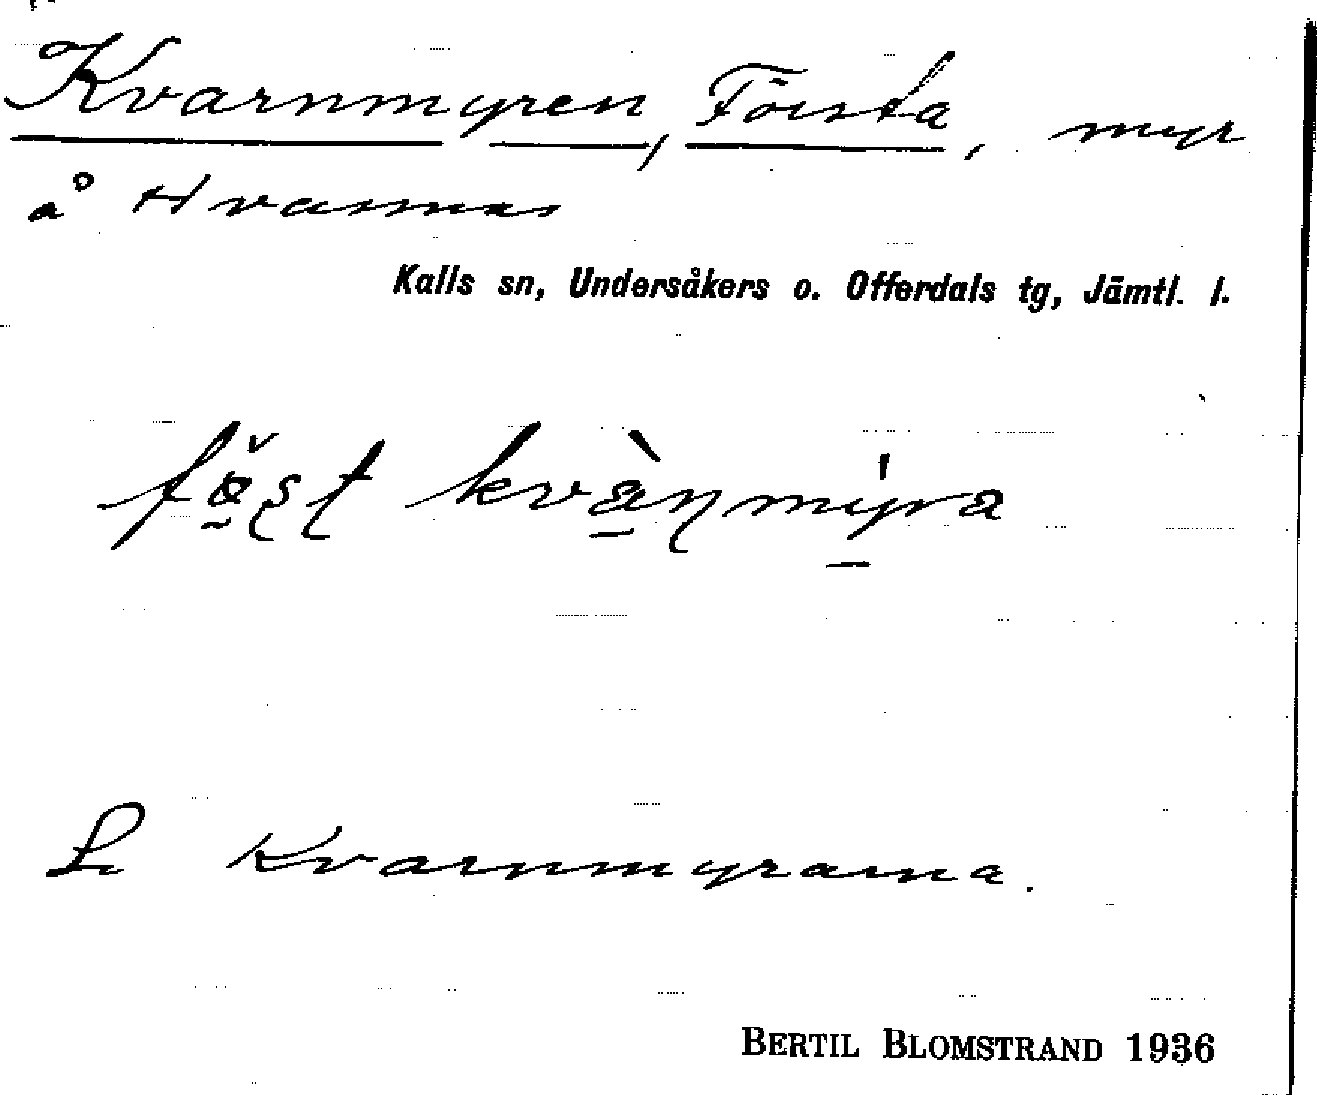 Kvarnmyren, Första, myr
å
Kalls sn, Undersåkers o. Offerdals tg, Jämtl. l.
kvà̱ɳmy̱̍ra
Kvarnmyrarna.
BERTIL BLOMSTRAND 1936